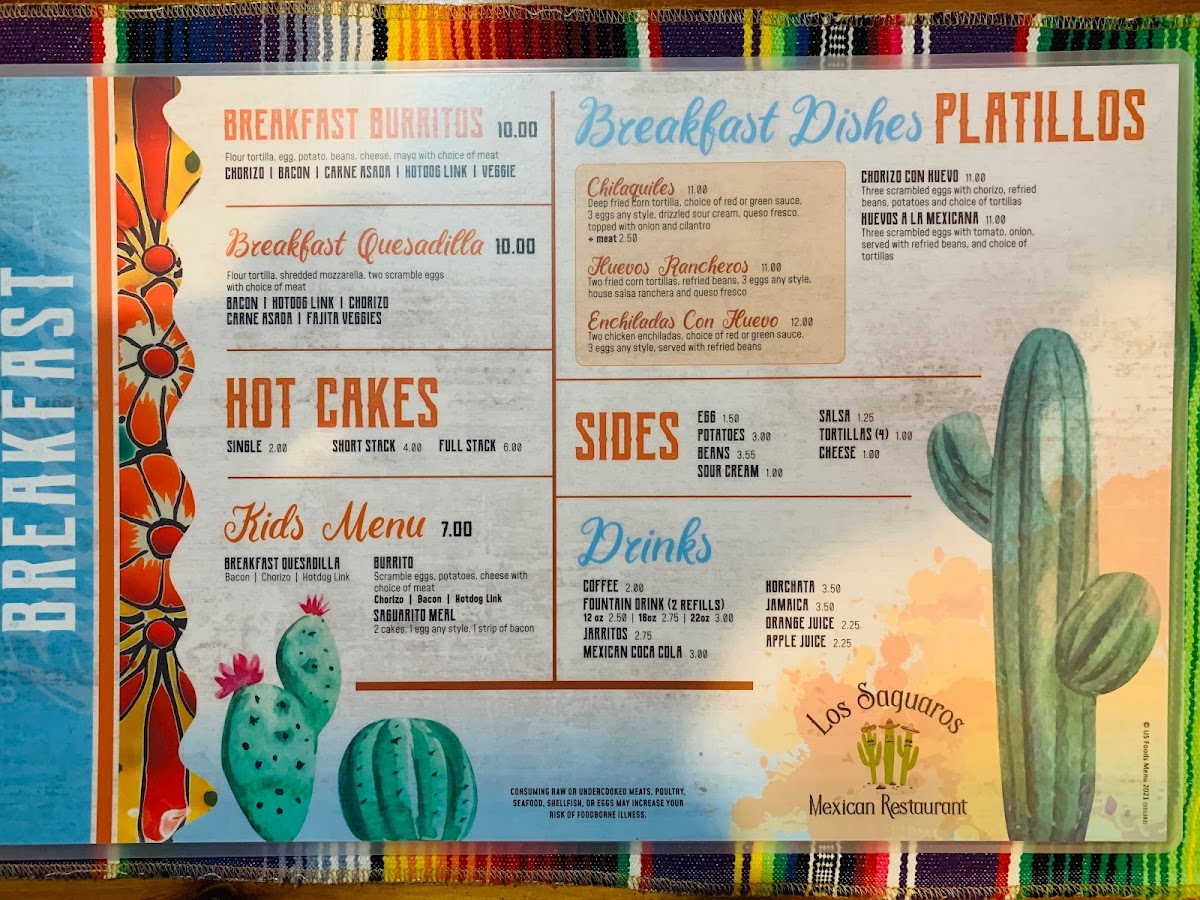 BREAKFAST
BREAKFAST BURRITOS 10.00
Flour tortilla, egg, potato, beans, cheese, mayo with choice of meat
CHORIZO | BACON | CARNE ASADA | HOTDOG LINK | VEGGIE
Breakfast Quesadilla 10.00
Flour tortilla, shredded mozzarella, two scramble eggs
with choice of meat
BACON | HOTDOG LINK | CHORIZO
CARNE ASADA | FAJITA VEGGIES
HOT CAKES
SINGLE 2.00 SHORT STACK 4.00 FULL STACK 6.00
Kids Menu 7.00
BREAKFAST QUESADILLA
Bacon | Chorizo | Hotdog Link
BURRITO
Scramble eggs, potatoes, cheese with
choice of meat
Chorizo | Bacon | Hotdog Link
SAGUARITO MEAL
2 cakes, 1 egg any style, 1 strip of bacon
Breakfast Dishes PLATILLOS
Chilaquiles 11.00
Deep fried corn tortilla, choice of red or green sauce,
3 eggs any style, drizzled sour cream, queso fresco,
topped with onion and cilantro
+ meat 2.50
Huevos Rancheros 11.00
Two fried corn tortillas, refried beans, 3 eggs any style,
house salsa ranchera and queso fresco
Enchiladas Con Huevo 12.00
Two chicken enchiladas, choice of red or green sauce,
3 eggs any style, served with refried beans
CHORIZO CON HUEVO 11.00
Three scrambled eggs with chorizo, refried
beans, potatoes and choice of tortillas
HUEVOS A LA MEXICANA 11.00
Three scrambled eggs with tomato, onion,
served with refried beans, and choice of
tortillas
SIDES
EGG 1.50
POTATOES 3.00
BEANS 3.55
SOUR CREAM 1.00
SALSA 1.25
TORTILLAS (4) 1.00
CHEESE 1.00
Drinks
COFFEE 2.00
FOUNTAIN DRINK (2 REFILLS)
12 oz 2.50 | 16oz 2.75 | 22oz 3.00
JARRITOS 2.75
MEXICAN COCA COLA 3.00
HORCHATA 3.50
JAMAICA 3.50
ORANGE JUICE 2.25
APPLE JUICE 2.25
Los Saguaros
Mexican Restaurant
CONSUMING RAW OR UNDERCOOKED MEATS, POULTRY,
SEAFOOD, SHELLFISH, OR EGGS MAY INCREASE YOUR
RISK OF FOODBORNE ILLNESS.
© US Foods Menu 2021